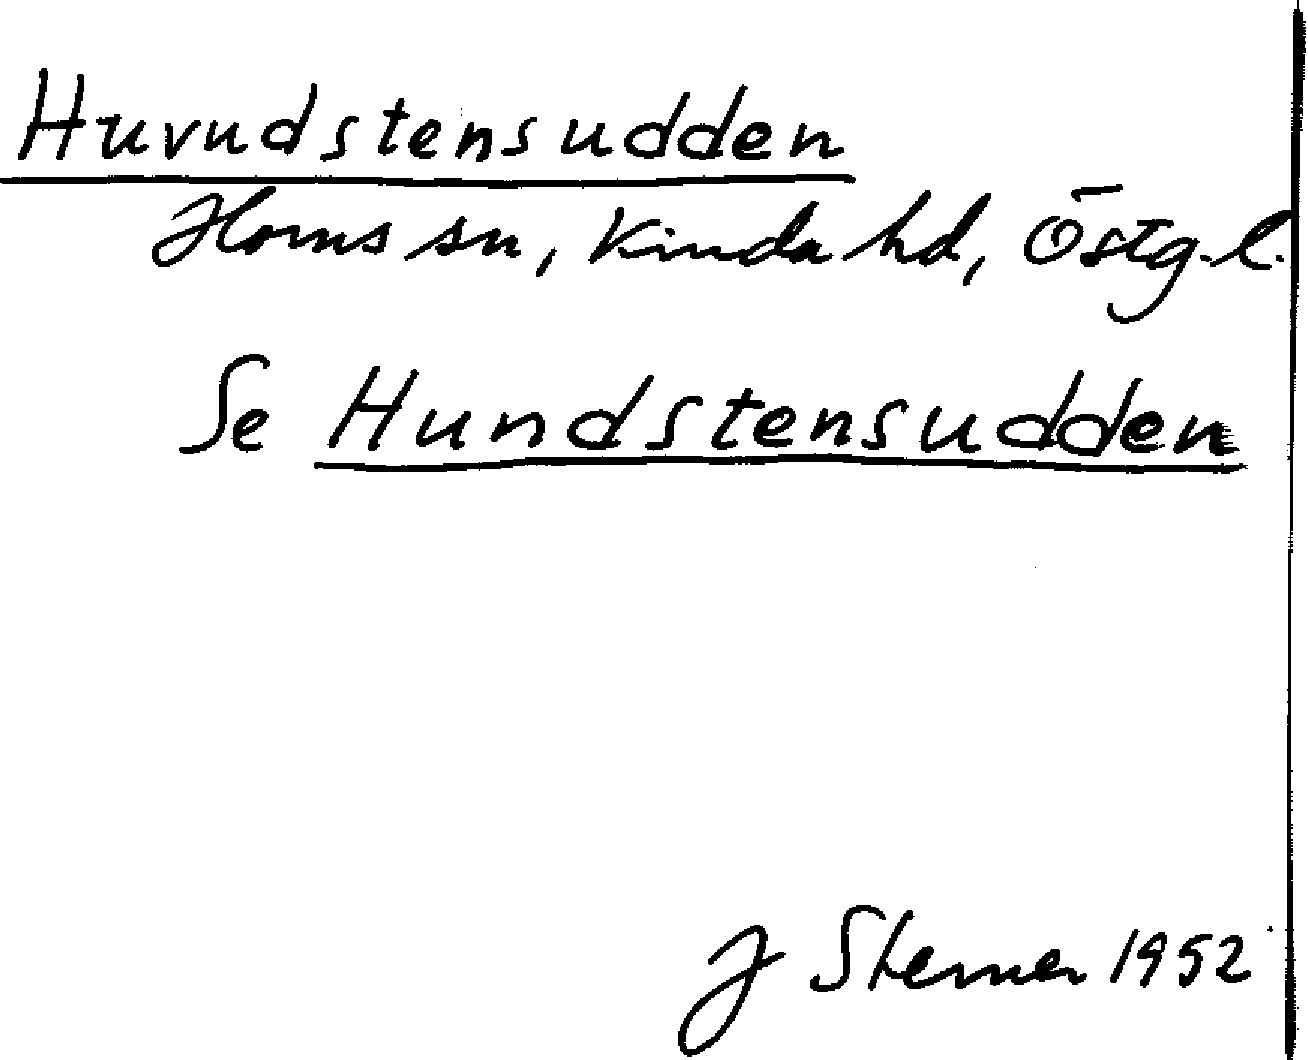 Huvudstensudden
Horns sn, Kinda hd, Östg.l.
Se Hundstensudden
J Sterner 1952